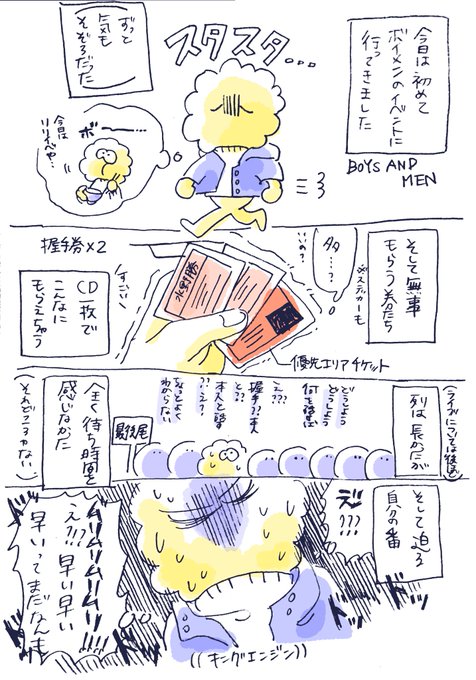 今日は初めて
ボイメンのイベントに
行ってきました
BOYS AND
MEN
スタスタ...
ずっと
気も
そぞろだった
ボー
今日は
リリイベや…
そして無事
もらう券たち
※ステッカーも
タタ…?
いいの?
握手券×2
水野勝
優先エリアチケット
すごい
CD一枚で
こんなに
もらえちゃう
(ライブについては後ほど)
列は長かったが
どうしよう
どうしよう
何を話せば
え…?
握手??本人
と??
本人と話す
??え?
ちょっとよく
わからな
最後尾
全く待ち時間を
感じなかた
(それどころがない)
そして迫る
自分の番
デ!???
ムリムリムリムリ
え?!!早い早い
早いってまだなんも
ドッ
ドッ
((キングエンジン))